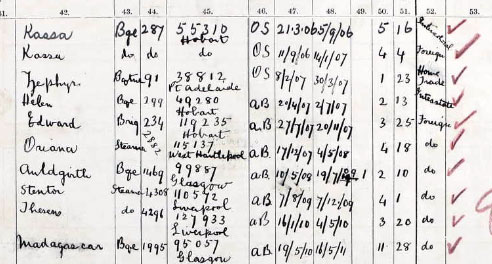 41. 42. 43. 44. 45. 46. 47. 48. 49. 50. 51. 52. 53.
Kassa Bge 287 55310 Hobart OS 21.3.06 5/9/06 5 16
Kassa do do do OS 11/9/06 14/1/07 4 4 Foreign
Zephyr 91 38812 Pt Adelaide OS 8/2/07 30/3/07 1 23 Home Trade
Helen Bge 299 49280 aB 20/4/07 2/7/07 2 13 Interstate
Edward Brig 234 119235 Hobart aB 27/7/07 20/11/07 3 25 Foreign
Oriana Steamer 2982 115137 West Hartlepool aB 17/12/07 4/5/08 4 18 do
Auldgirth Bge 1469 99887 Glasgow aB 10/5/09 2 10 do
Stentor Steamer 4308 110572 Liverpool aB 7/8/09 7/12/09 4 1 do
Theseus do 4296 127933 Liverpool aB 16/1/10 4/5/10 3 20 do
Madagascar Bge 1995 95057 Glasgow aB 19/5/10 16/5/11 11 28 do